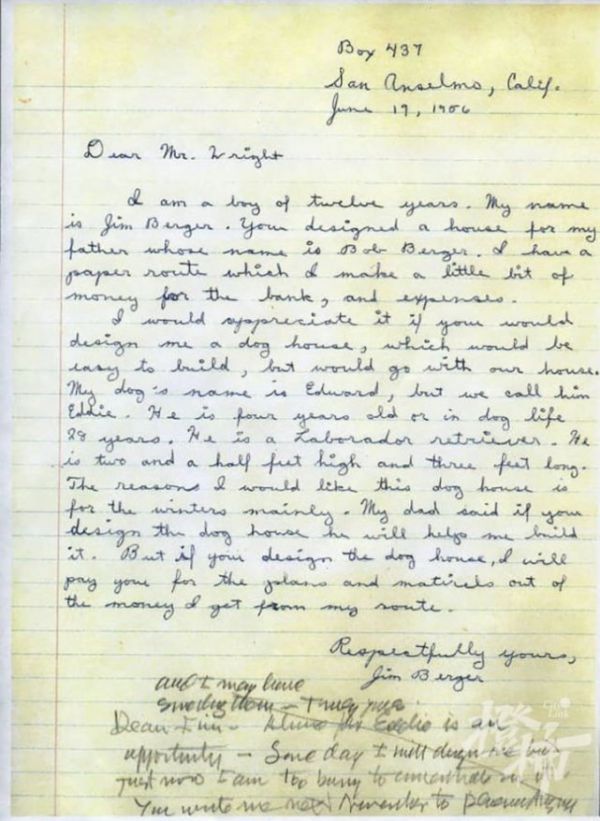 Box 437
San Anselmo, Calif.
June 19, 1956
Dear Mr. Wright
I am a boy of twelve years. My name
is Jim Berger. You designed a house for my
father whose name is Bob Berger. I have a
paper route which I make a little bit of
money for the bank, and expenses.
I would appreciate it if you would
design me a dog house, which would be
easy to build, but would go with our house.
My dog's name is Edward, but we call him
Eddie. He is four years old or in dog life
28 years. He is a Laborador retriever. He
is two and a half feet high and three feet long.
The reasons I would like this dog house is
for the winters mainly. My dad said if you
design the dog house he will help me build
it. But if you design the dog house, I will
pay you for the plans and matirels out of
the money I get from my route.
Respectfully yours,
Jim Berger
and I may have
something then — Truly yours
Dear Jim - A house for Eddie is an
opportunity — Some day I will design one but
just now I am too busy to concentrate on it.
You write me next November to Phoenix